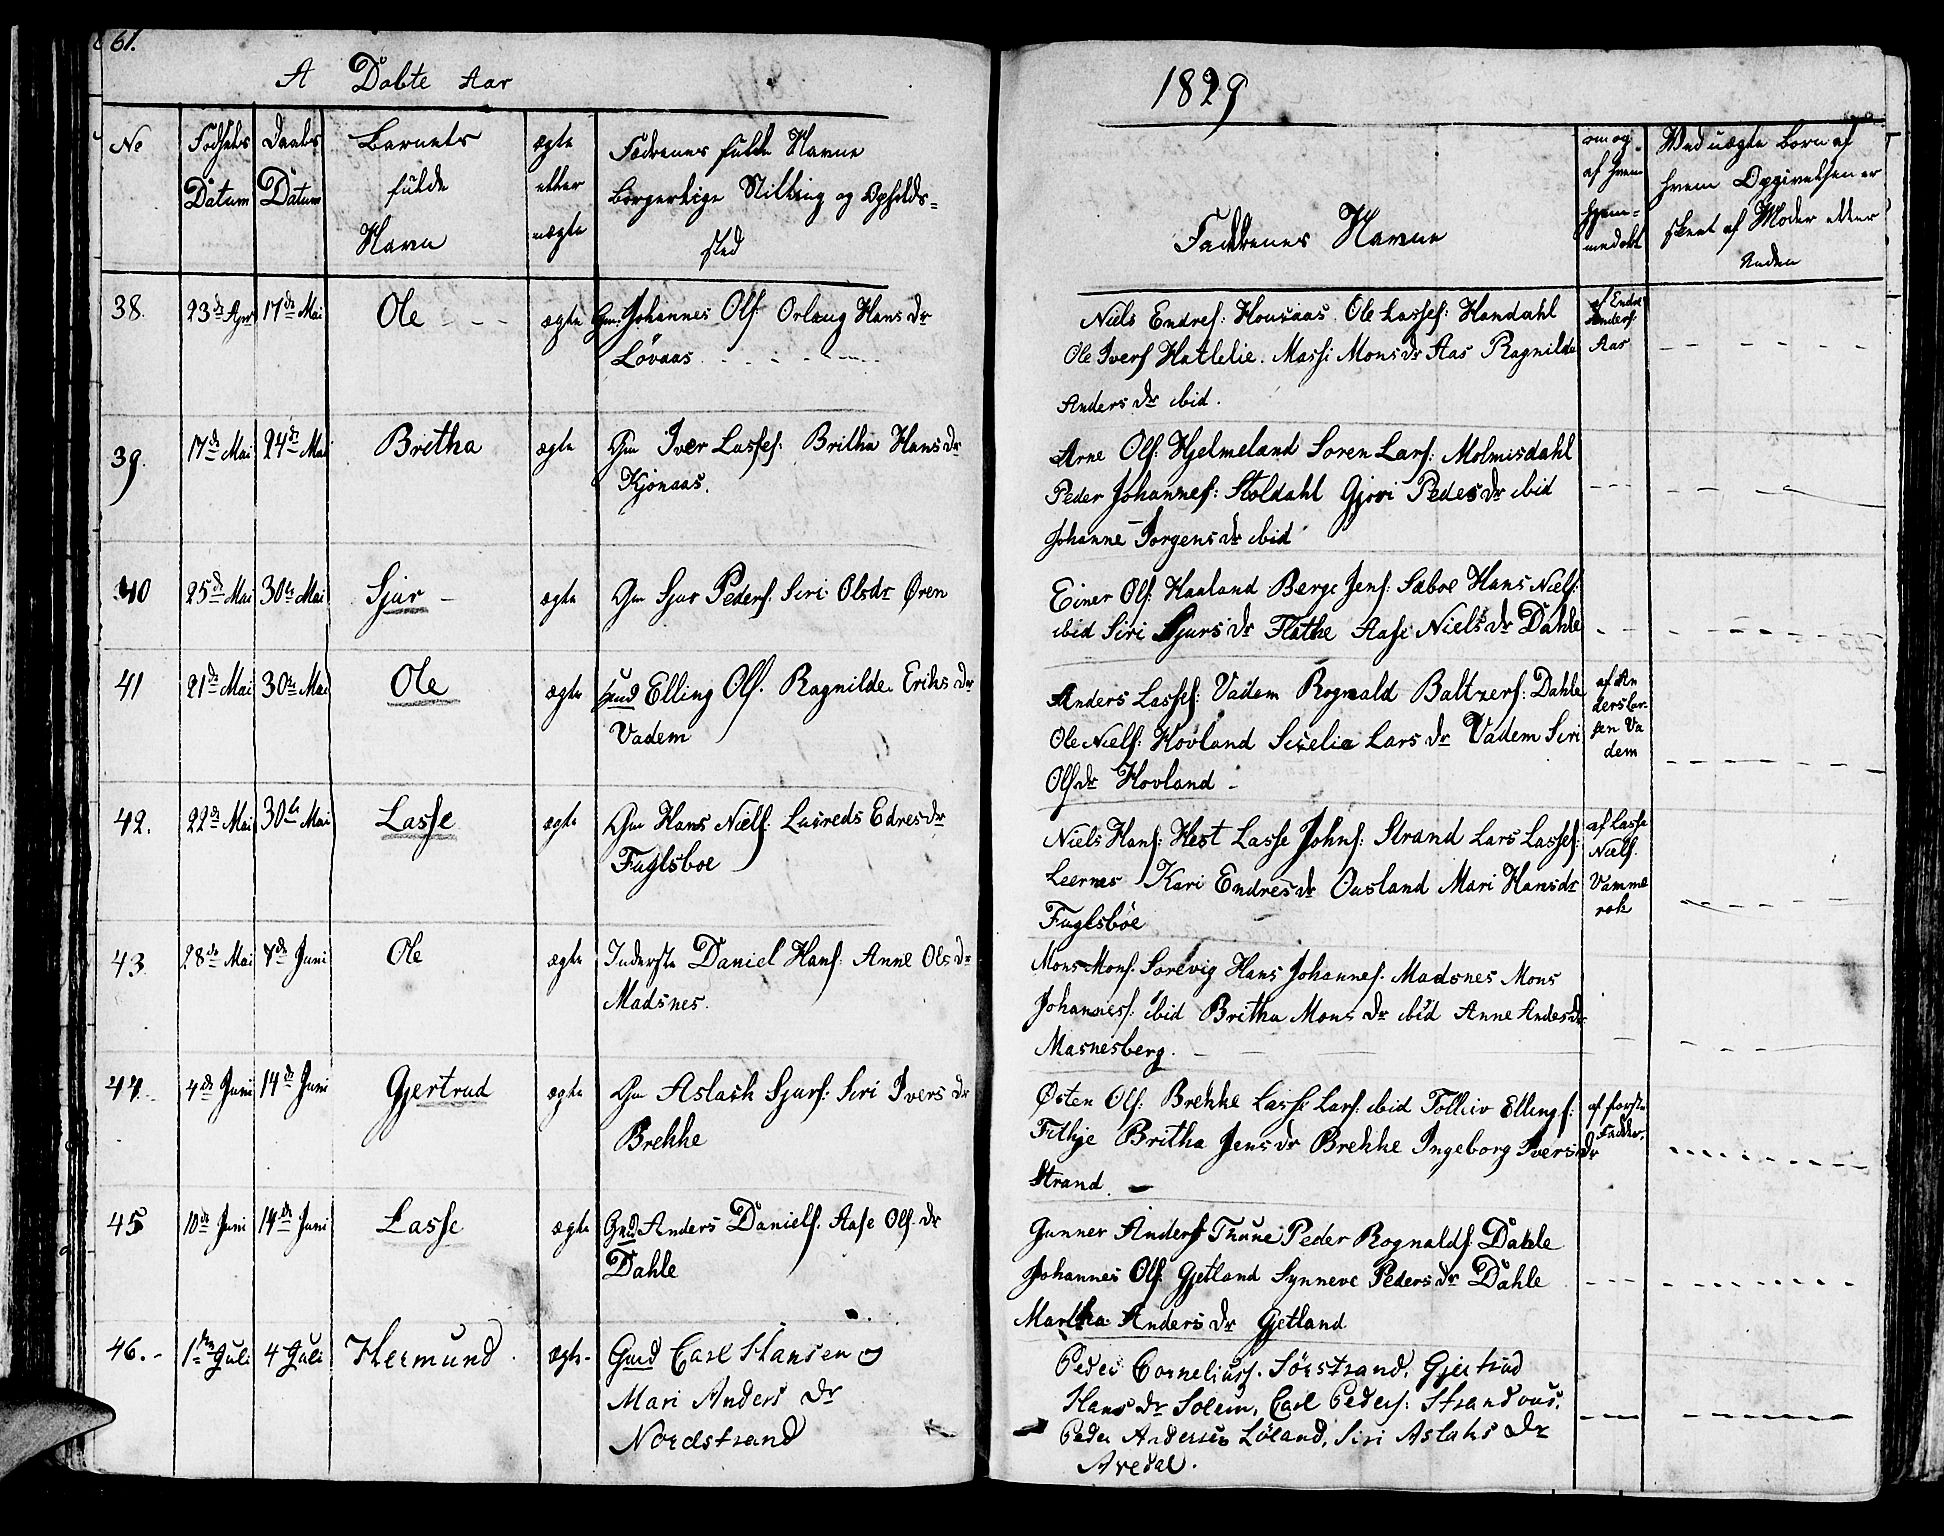 61.
A Døbte Aar
1829
No
Fødsels
Datum
Daabs
Datum
Barnets
fulde
Navn
ægte
eller
uægte
Fædrenes fulde Navne
Borgerlige Stilling og Opholds=
sted
Faddernes Navne
om og
af hvem
hjem=
medøbt
Ved uægte Børn af
hvem Opgivelsen er
skeet af Moder eller
Anden
38. 23de Apr 17de Mai Ole - - - ægte Gm. Johannes Olss: Orlaug Hans Dr
Løvaas
Niels Endres: Housaas Ole Lasses: Handahl
Ole Ivers Hatlelie. Massi Mons Dr Aas Ragnilde
Anders Dr ibid.
af Endre
Anders:
Aas
39. 17de Mai 24de Mai Britha ægte Gm Iver Lasses: Britha Hans Dr
Kjønaas.
Arne Ols: Hjelmeland Søren Lars: Molmisdahl
Peder Johannes: Stoldahl Gjøri Peders Dr ibid
Johanne Jørgens Dr ibid
40 25de Mai 30te Mai Sjur - ægte Gm Sjur Peders. Siri Olsdr Øren
Einer Ols: Haaland Børge Jens: Sæboe Hans Niels:
ibid Siri Sjurs Dr Flathe Aase Niels Dr Dahle
41 21de Mai 30te Mai Ole ægte Gmd Elling Ols. Ragnilde Eriks Dr
Vadem
Anders Lasses: Vadem Rognald Baltzers: Dahle
Ole Niels: Hovland Siselia Lars Dr Vadem Siri
Ols Dr Hovland -
af An
ders Lar-
sen Va
dem
42. 22de Mai 30te Mai Lasse ægte Gm Hans Niels: Lasreds Edres Dr
Fuglsboe
Niels Hans: Hest Lasse Johns: Strand Lars Lasses:
Leernes Kari Endres Dr Ousland Mari Hansdr
Fuglsbøe
af Lasse
Niels.
Vamme
rok
43 28de Mai 7de Juni Ole ægte Inderste Daniel Hans: Anne Ols Dr
Madsnes.
Mons Mons. Sørevig Hans Johannes. Madsnes Mons
Johanness: ibid Britha Mons Dr ibid Anne Andes Dr
Masnesberg.
44. 4de Juni 14de Juni Gjertrud ægte Gm Aslack Sjurs: Siri Ivers Dr
Brekke
Østen Ols: Brekke Lasse Lars: ibid Tolleiv Ellings:
Fithje Britha Jens Dr Brekke Ingeborg Ivers Dr
Strand.
af første
Fadder.
45 10de Juni 14de Juni Lasse ægte Gmd Anders Daniels. Aase Ols. Dr
Dahle
Gunner Anders Thune Peder Rognalds: Dahle
Johannes Ols: Gjetland Synneve Peders Dr Dahle
Martha Anders Dr Gjetland
46. - 1ste Juli 4 Juli Hermund. ægte- Gmd Carl Hansen og
Mari Anders Dr
Nordstrand
Peder Corneliuss. Sørstrand, Gjertrud
Hans Dr Solem, Carl Peders: Strandous,
Peder Andersen Løland, Siri Aslaks Dr
Avedal.